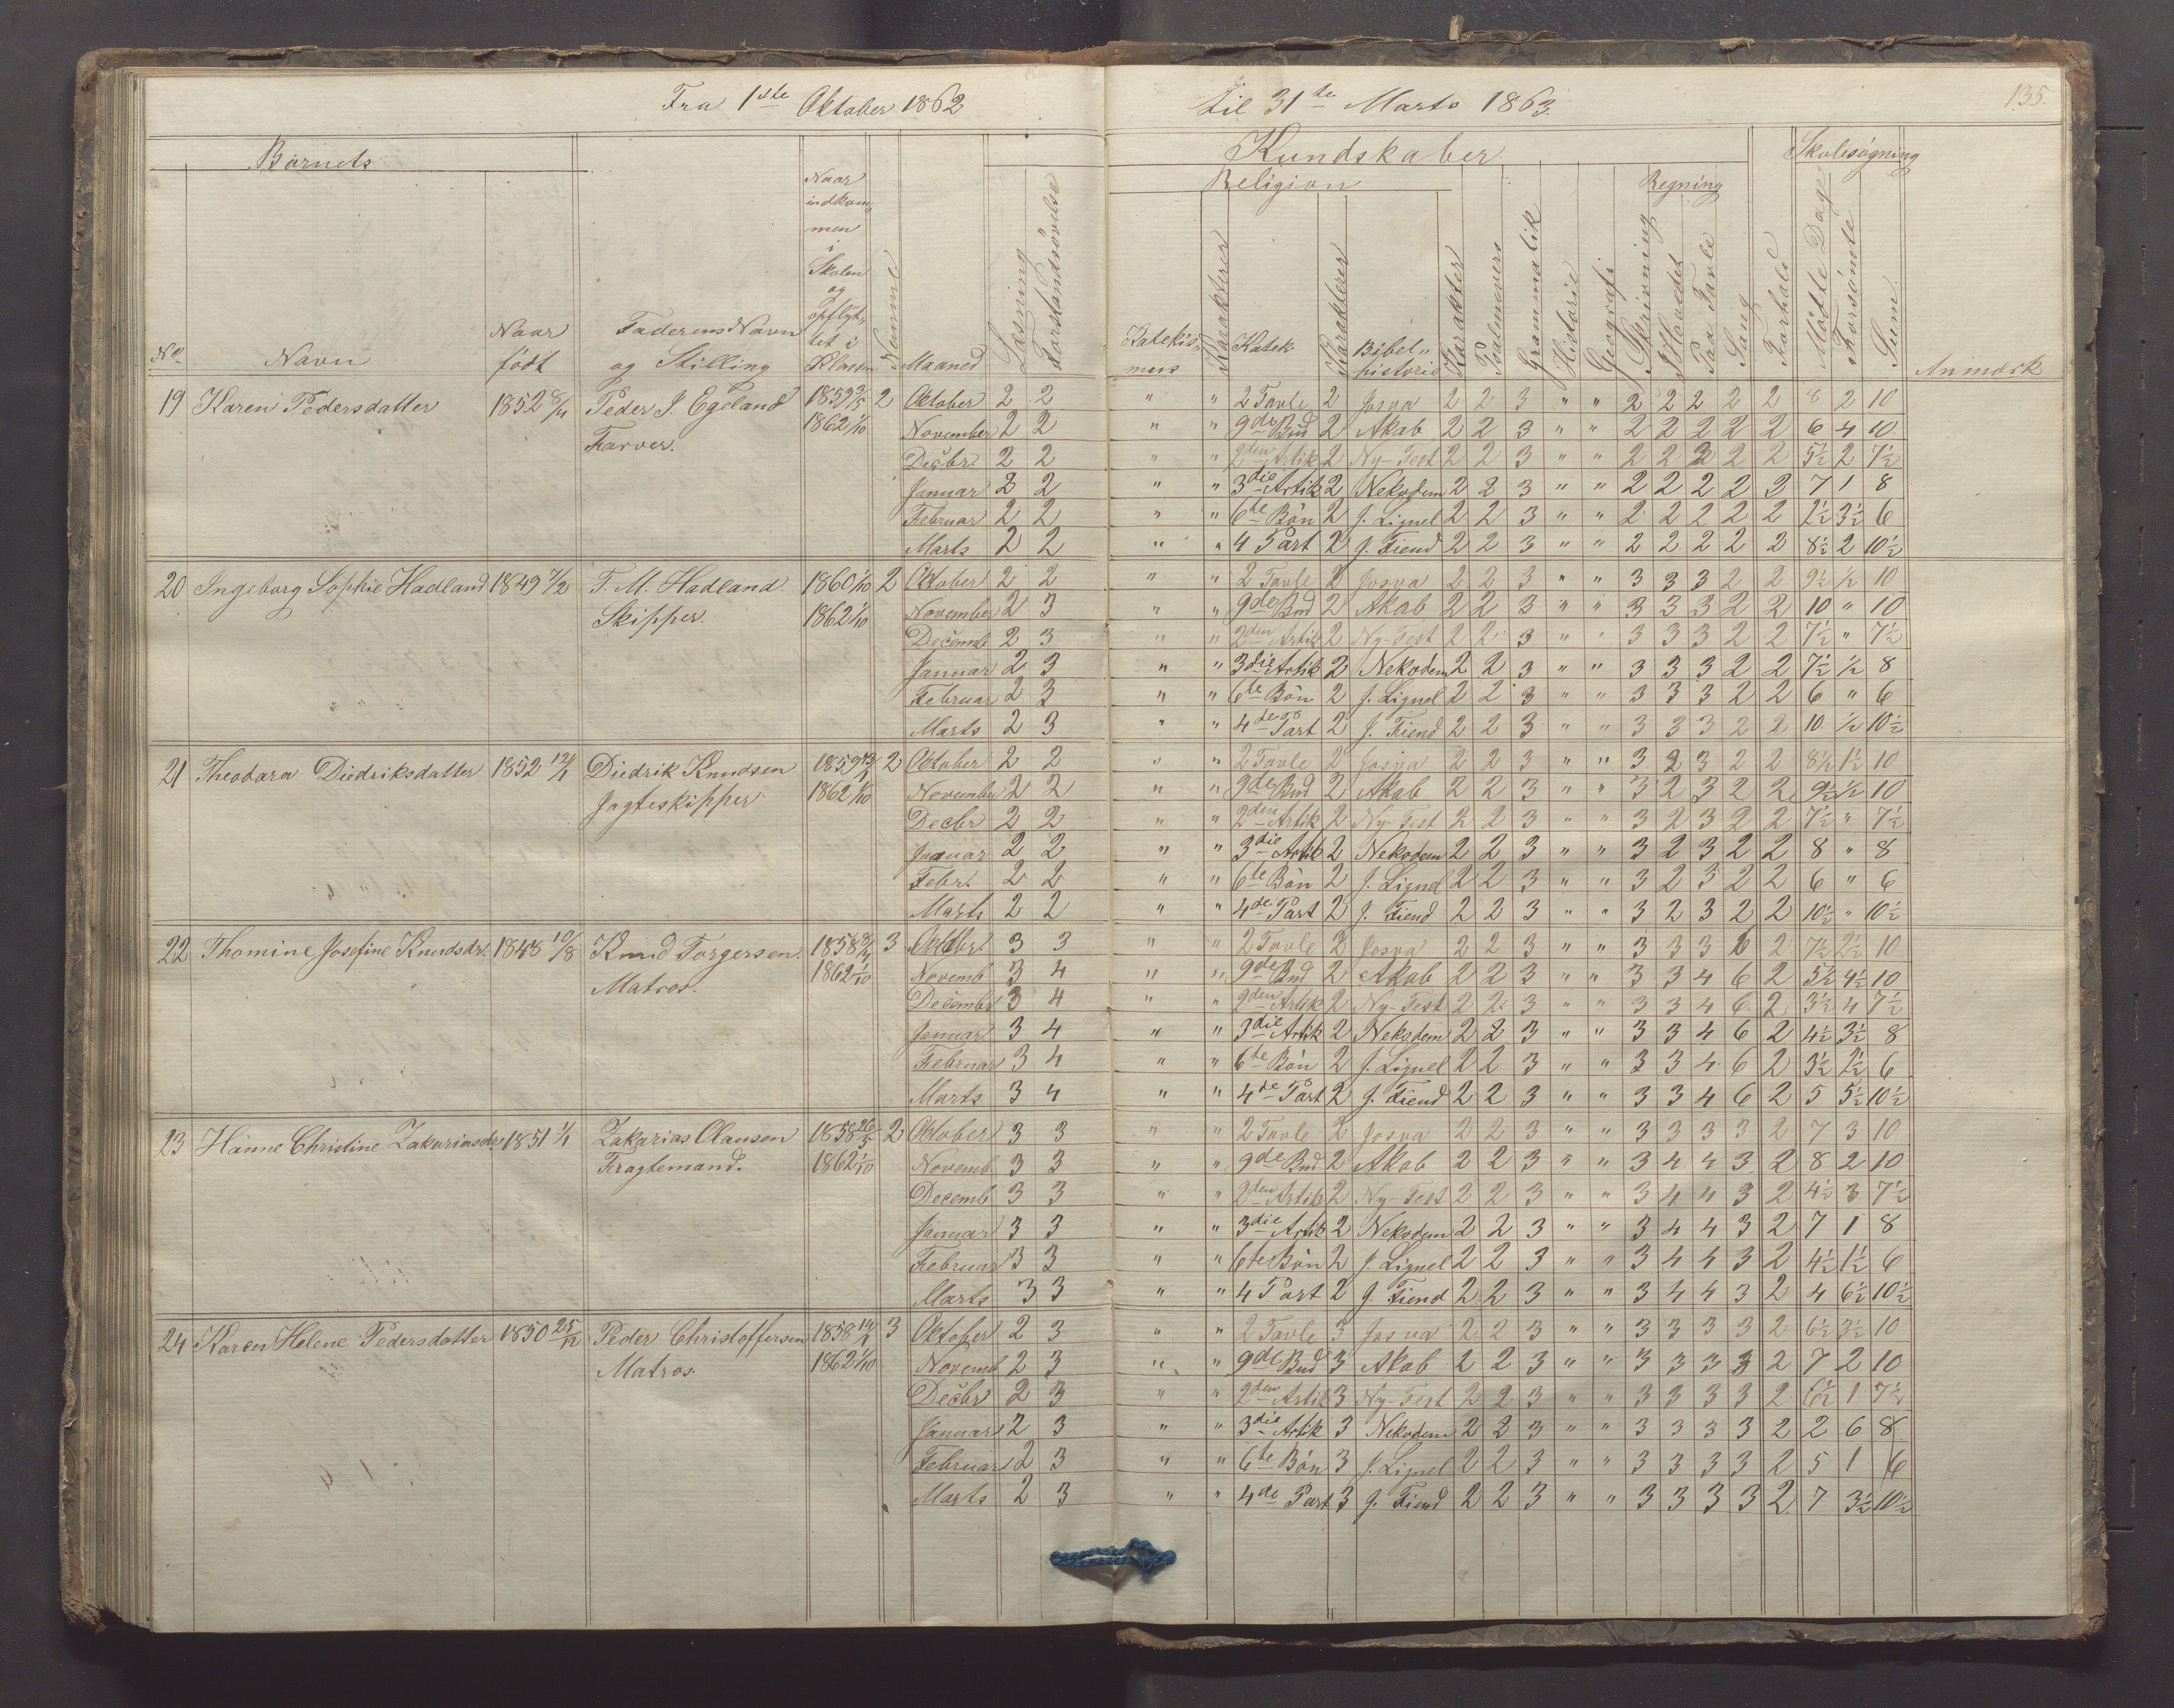 Fra 1ste Oktober 1862 til 31te Marts 1863. 135.
Barnets Kundskaber Skolesøgning
Religion Regning
No Navn Naar født Faderens Navn og Stilling Naar indkommen i Skolen og opflyttet i Klassen Nummer Maaned Læsning Forstandsøvelse Katekismus Karakterer Katek Karakterer Bibelhistorie Karakter Psalmevers Grammatik Historie Geografi Skrivning I Hovedet Paa Tavle Sang Forhold Mødte Dage Forsømte Sum Anmærk
19 Karen Pedersdatter 1852 8/11 Peder J. Egeland 1859 3/5 2 Oktober 2 2 " " 2 Tavle 2 Josva 2 2 3 " " 2 2 2 2 2 8 2 10
Farver. 1862 1/10 November 2 2 " " 9de Bud 2 Akab 2 2 3 " " 2 2 2 2 2 6 4 10
Decbr. 2 2 " " 2den Artik 2 Ny-Test 2 2 3 " " 2 2 2 2 2 5½ 2 7½
Januar 2 2 " " 3die Artik 2 Nekodem 2 2 3 " " 2 2 2 2 2 7 1 8
Februar 2 2 " " 6te Bön 2 J. Lignel 2 2 3 " " 2 2 2 2 2 2½ 3½ 6
Marts 2 2 " " 4 Part 2 J. Fiend 2 2 3 " " 2 2 2 2 2 8½ 2 10½
20 Ingeborg Sophie Hadland 1849 7/2 T. M. Hadland. 1860 1/10 2 Oktober 2 2 " " 2 Tavle 2 Josva 2 2 3 " " 3 3 3 2 2 9½ ½ 10
Skipper. 1862 1/10 November 2 3 " " 9de Bud 2 Akab 2 2 3 " " 3 3 3 2 2 10 " 10
Decemb 2 3 " " 2den Artik 2 Ny-Test 2 2 3 " " 3 3 3 2 2 7½ " 7½
Januar 2 3 " " 3die Artik 2 Nekodem 2 2 3 " " 3 3 3 2 2 7½ ½ 8
Februar 2 3 " " 6te Bön 2 J. Lignel 2 2 3 " " 3 3 3 2 2 6 " 6
Marts 2 3 " " 4de Part 2 J. Fiend 2 2 3 " " 3 3 3 2 2 10 ½ 10½
21 Theodora Diedriksdatter 1852 12/1 Diedrik Knudsen 1859 2 Oktober 2 2 " " 2 Tavle 2 Josva 2 2 3 " " 3 2 3 2 2 8½ 1½ 10
Jagteskipper 1862 1/10 November 2 2 " " 9de Bud 2 Akab 2 2 3 " " 3 2 3 2 2 9½ ½ 10
Decbr 2 2 " " 2den Artik 2 Ny-Test 2 2 3 " " 3 2 3 2 2 7½ " 7½
Januar 2 2 " " 3die Artik 2 Nekodem 2 2 3 " " 3 2 3 2 2 8 " 8
Febr. 2 2 " " 6te Bön 2 J. Lignel 2 2 3 " " 3 2 3 2 2 6 " 6
Marts 2 2 " " 4de Part 2 J. Fiend 2 2 3 " " 3 2 3 2 2 10½ " 10½
22 Thomine Josefine Knudsdr. 1848 10/8 Knud Torgersen. 1858 3 Oktobr 3 3 " " 2 Tavle 2 Josva 2 2 3 " " 3 3 3 6 2 7½ 2½ 10
Matros. 1862 1/10 Novemb 3 4 " " 9de Bud 2 Akab 2 2 3 " " 3 3 4 6 2 5½ 4½ 10
Decembr 3 4 " " 2den Artik 2 Ny-Test 2 2 3 " " 3 3 4 6 2 3½ 4 7½
Januar 3 4 " " 3die Artik 2 Nekodem 2 2 3 " " 3 3 4 6 2 4½ 3½ 8
Februar 3 4 " " 6te Bön 2 J. Lignel 2 2 3 " " 3 3 4 6 2 3½ 2½ 6
Marts 3 4 " " 4de Part 2 J. Fiend 2 2 3 " " 3 3 4 6 2 5 5½ 10½
23 Hanne Christine Zakariasdr. 1851 1/1 Zakarias Olausen 1858 26/5 2 Oktober 3 3 " " 2 Tavle 2 Josva 2 2 3 " " 3 3 3 3 2 7 3 10
Fragtemand. 1862 1/10 Novemb 3 3 " " 9de Bud 2 Akab 2 2 3 " " 3 4 4 3 2 8 2 10
Decemb 3 3 " " 2den Artik 2 Ny-Test 2 2 3 " " 3 4 4 3 2 4½ 3 7½
Januar 3 3 " " 3die Artik 2 Nekodem 2 2 3 " " 3 4 4 3 2 7 1 8
Februar 3 3 " " 6te Bön 2 J. Lignel 2 2 3 " " 3 4 4 3 2 4½ 1½ 6
Marts 3 3 " " 4 Part 2 J. Fiend 2 2 3 " " 3 4 4 3 2 4 6½ 10½
24 Karen Helene Pedersdatter 1850 25/12 Peder Christoffersen 1858 3 Oktober 2 3 " " 2 Tavle 3 Josva 2 2 3 " " 3 3 3 3 2 6½ 3½ 10
Matros. 1862 1/10 Novemb 2 3 " " 9de Bud 3 Akab 2 2 3 " " 3 3 3 3 2 7 2 10
Decbr 2 3 " " 2den Artik 3 Ny-Test 2 2 3 " " 3 3 3 3 2 6½ 1 7½
Januar 2 3 " " 3die Artik 3 Nekodem 2 2 3 " " 3 3 3 3 2 2 6 8
Februar 2 3 " " 6te Bön 3 J. Lignel 2 2 3 " " 3 3 3 3 2 5 1 6
Marts 2 3 " " 4de Part 3 J. Fiend 2 2 3 " " 3 3 3 3 2 7 3½ 10½